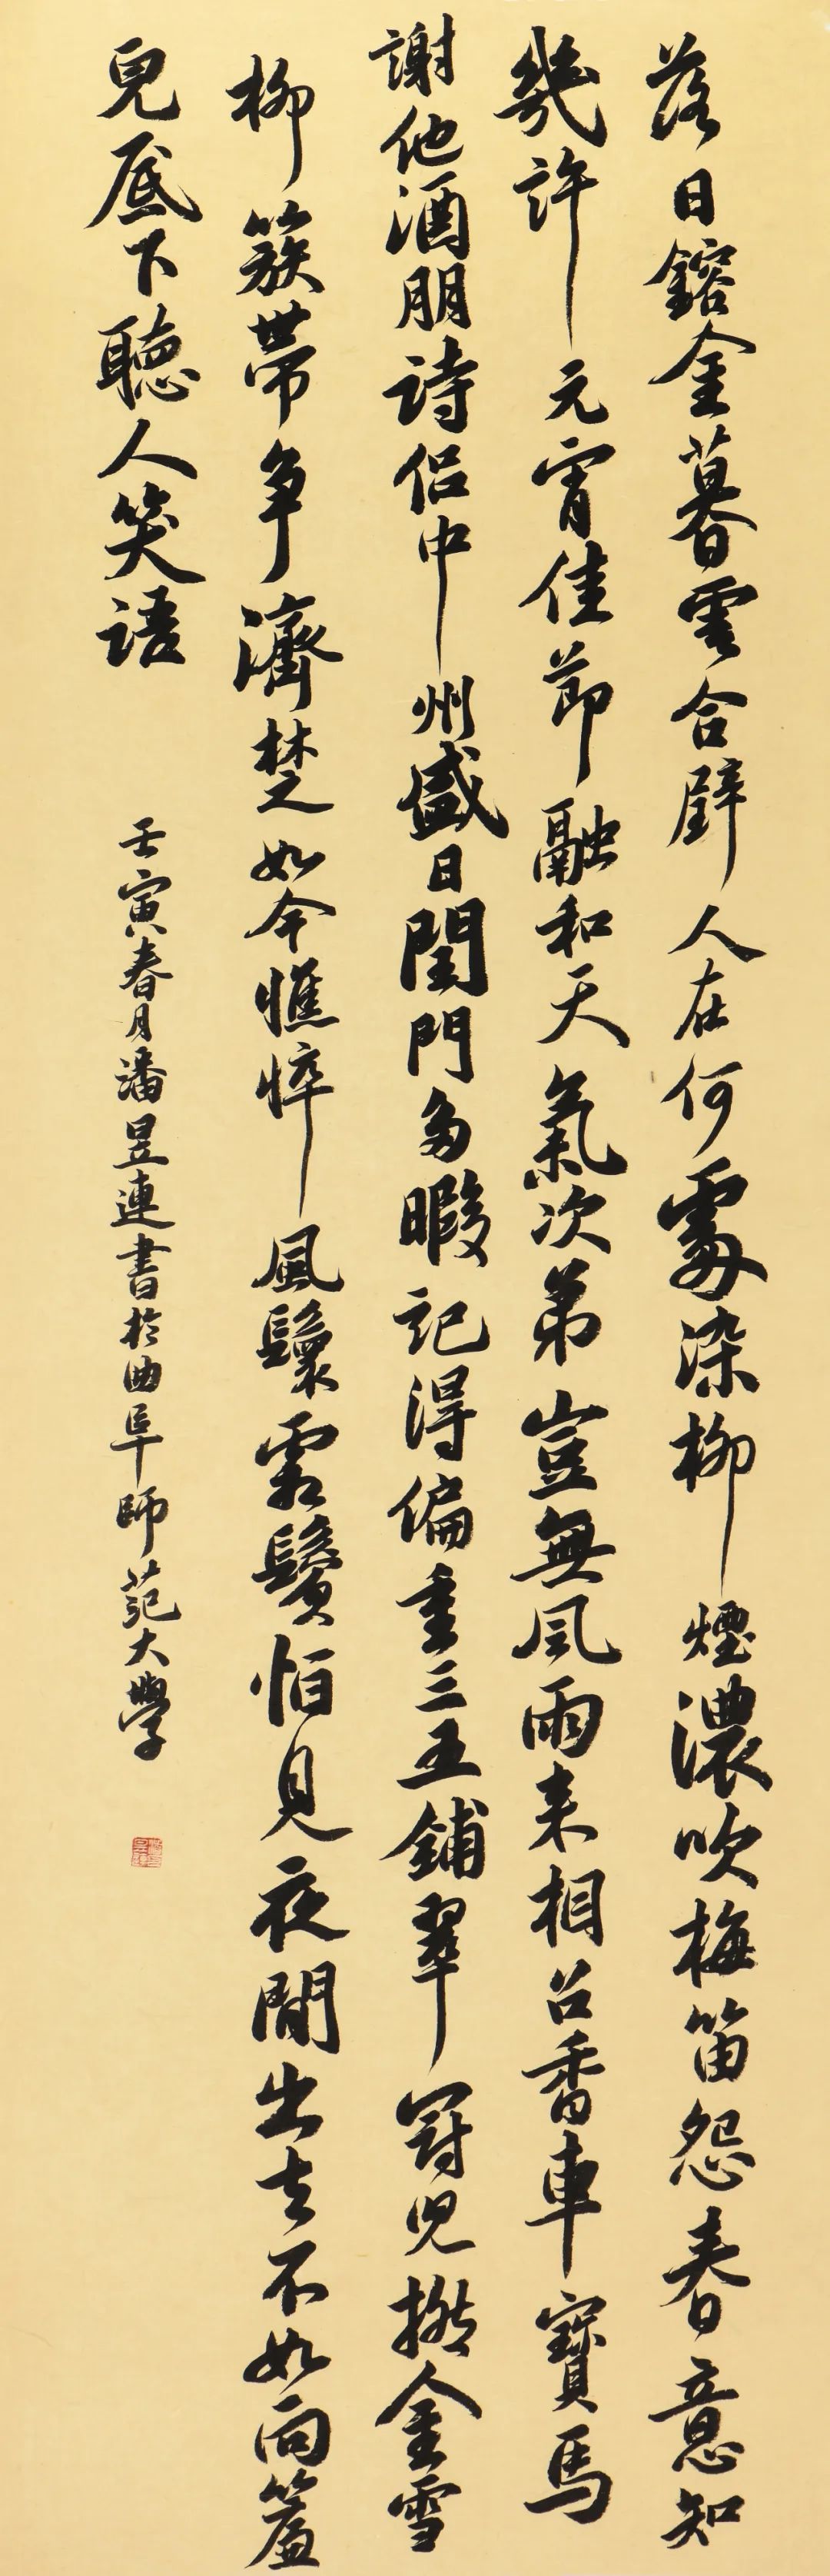 落日鎔金暮雲合璧人在何處染柳煙濃吹梅笛怨春意知
幾許元宵佳節融和天氣次第豈無風雨來相召香車寶馬
謝他酒朋詩侶中州盛日閨門多暇記得偏重三五鋪翠冠兒撚金雪
柳簇帶爭濟楚如今憔悴風鬟霜鬢怕見夜間出去不如向簾
兒底下聽人笑語
壬寅春月潘昱連書於曲阜師范大學